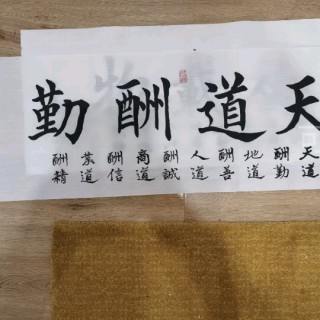 天道酬勤
天道
酬勤
地道
酬善
人道
酬誠
商道
酬信
業道
酬精